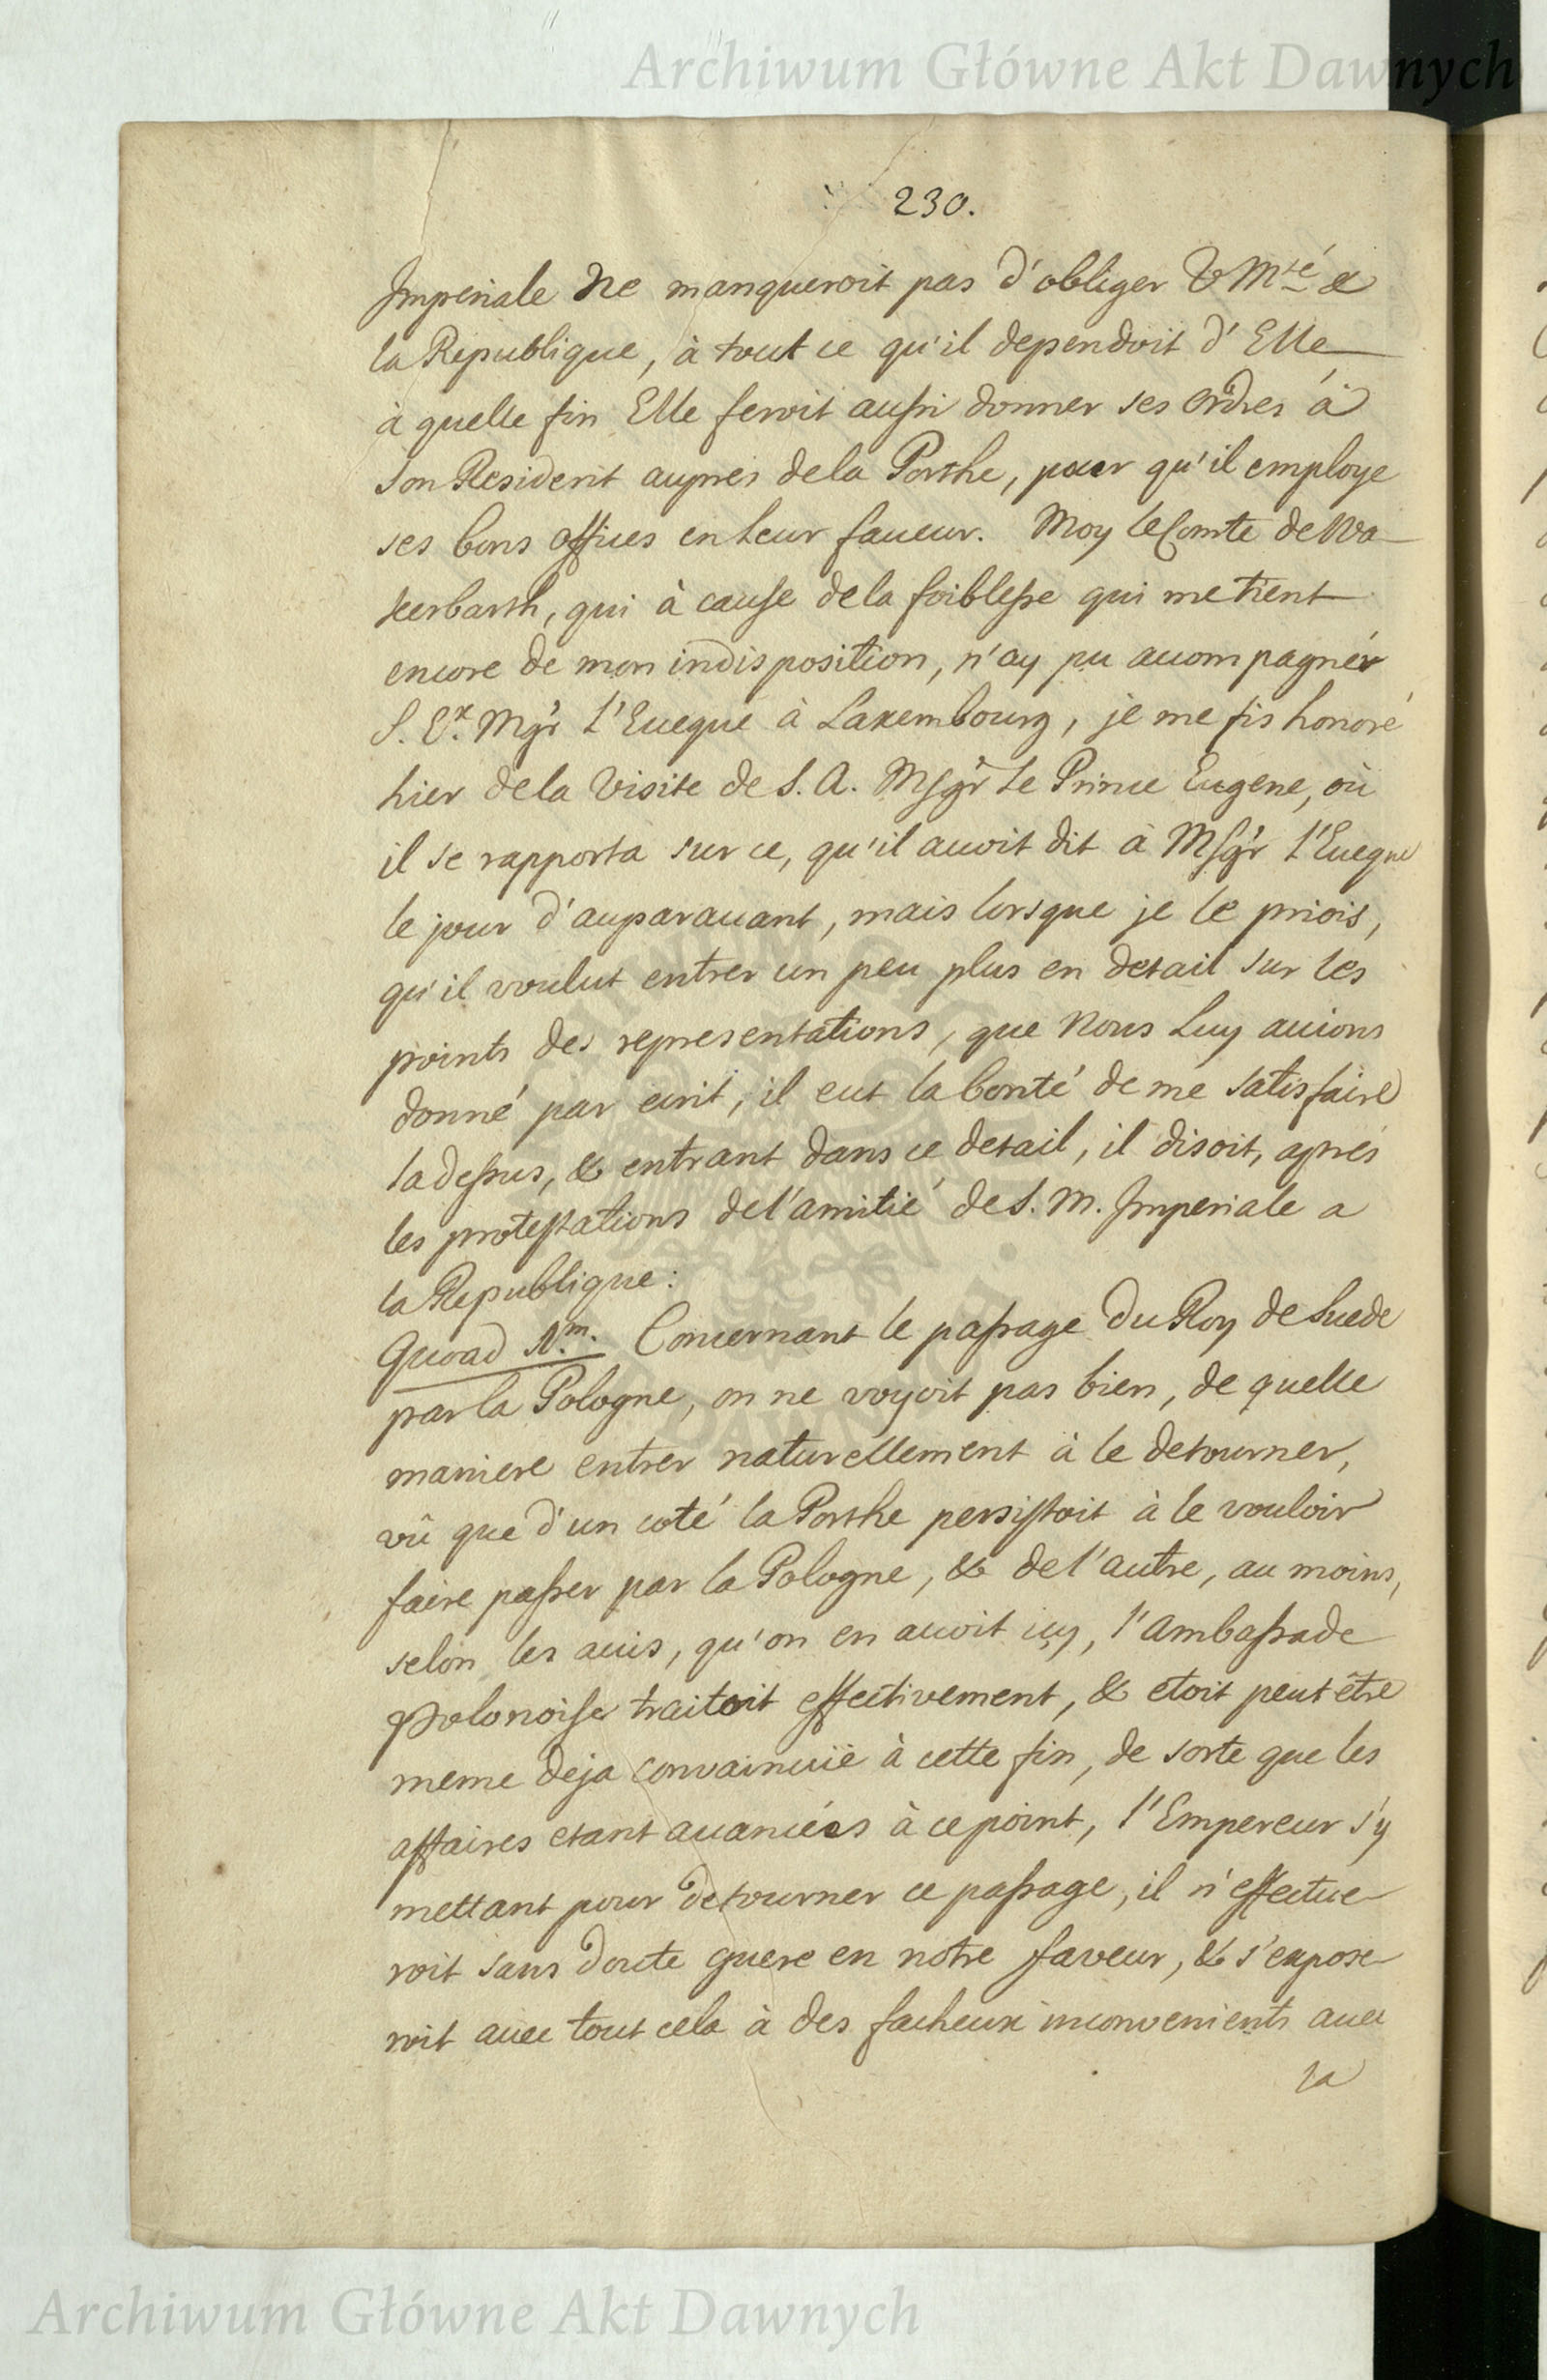 Archiwum Główne Akt Dawnych
230.
Imperiale Ne manqueroit pas d'obliger V Mté &
la Republique, à tout ce qu'il dependoit d'Elle
à quelle fin Elle feroit aussi donner ses ordres à
son Resident aupres de la Porthe, pour qu'il employe
ses bons offices en Leur faueur. Moy le Comte de Wa-
kerbarth, qui à cause de la foiblesse qui me tient
encore de mon indisposition, n'ay pu accompagner
S. Ex. Mgr L'Eueque à Laxembourg, je me fis honoré
hier de la Visite de S. A. Msgr Le Prince Eugene, où
il se rapporta sur ce, qu'il auoit dit à Msgr l'Eueque
le jour d'auparauant, mais lorsque je le priois,
qu'il voulut entrer un peu plus en detail sur les
points des representations, que Nous Luy auions
donné par ecrit, il eut la bonté de me satisfaire
la dessus, & entrant dans ce detail, il disoit, aprés
les protestations de l'amitié de S. M. Imperiale a
la Republique:
Quoad 1.m. Concernant le passage du Roy de Suede
par la Pologne, on ne voyoit pas bien, de quelle
maniere entrer naturellement à le detourner,
vû que d'un coté la Porthe persistoit à le vouloir
faire passer par la Pologne, & de l'autre, au moins,
selon les auis, qu'on en auoit icy, l'Ambassade
Polonoise traitoit effectivement, & etoit peut être
meme deja convaincuë à cette fin, de sorte que les
affaires etant auancées à ce point, l'Empereur s'y
mettant pour detourner ce passage, il n'effectue-
roit sans doute guere en notre faveur, & s'expose-
roit auec tout cela à des facheux inconvenients auec
la
Archiwum Główne Akt Dawnych